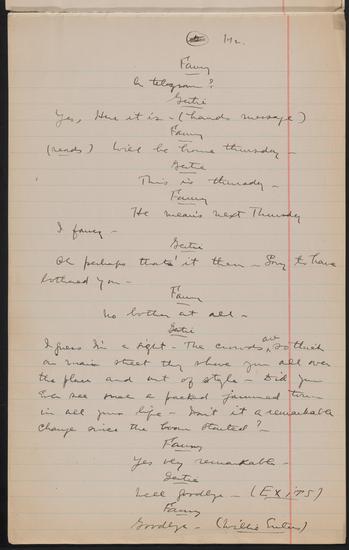 1-12.
Fanny
A telegram?
Gertie
Yes, Here it is - (hands message)
Fanny
(reads) Will be home thursday -
Gertie
This is thursday -
Fanny
He means next Thursday
I fancy -
Gertie
Oh perhaps that's it then - Sorry to have
bothered you -
Fanny
No bother at all -
Gertie
I guess I'm a sight - The crowds are so thick
on main street they shove you all over
the place and out of style - Did you
Ever see such a packed jammed town
in all your life - Isn't it a remarkable
change since the boom started? -
Fanny
Yes very remarkable -
Gertie
Well goodbye - (EXITS)
Fanny
Goodbye - (Willie Enters)